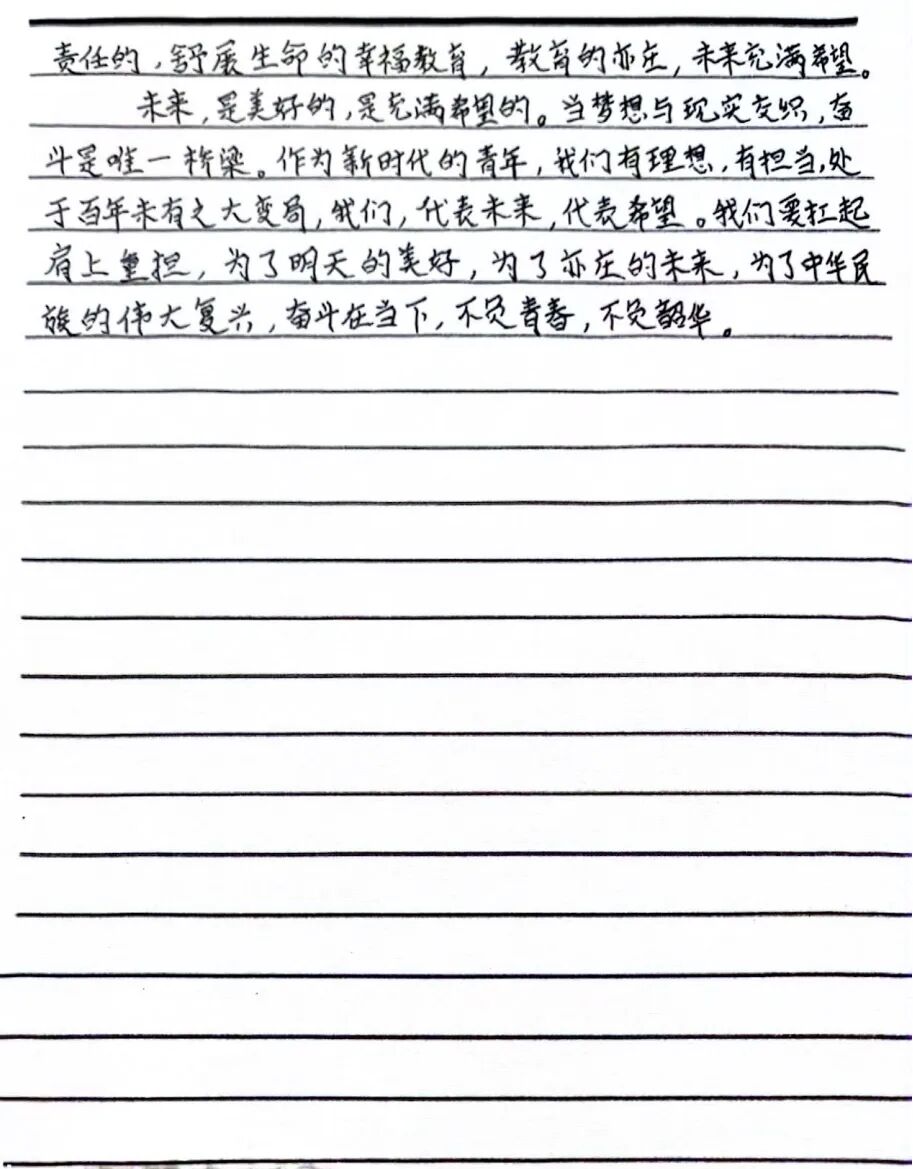 责任的，舒展生命的幸福教育，教育的亦庄，未来充满希望。
未来，是美好的，是充满希望的。当梦想与现实交织，奋
斗是唯一桥梁。作为新时代的青年，我们有理想，有担当，处
于百年未有之大变局，我们，代表未来，代表希望。我们要扛起
肩上重担，为了明天的美好，为了亦庄的未来，为了中华民
族的伟大复兴，奋斗在当下，不负青春，不负韶华。